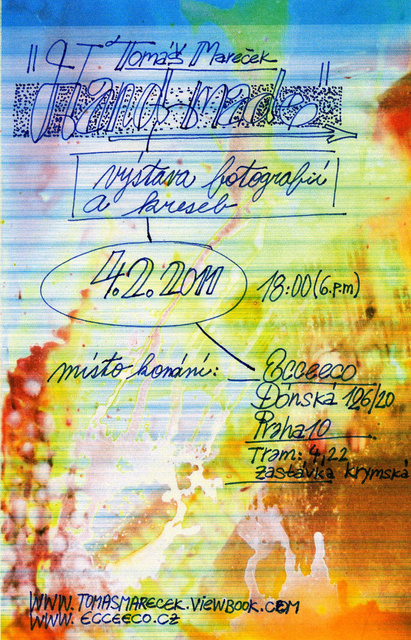 Tomáš Mareček
"Hand-made"
výstava fotografií
a kreseb
4.2.2011
18:00 (6.p.m)
místo konání:
Ecceeco
Dónská 126/20
Praha 10
Tram: 4,22
zastávka krymská
WWW.TOMASMARECEK.VIEWBOOK.COM
WWW.ECCEECO.CZ